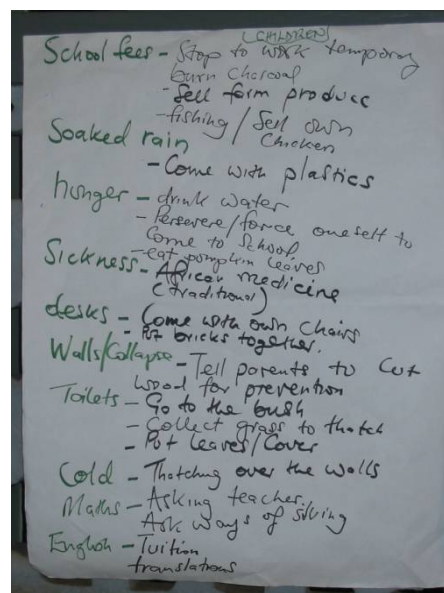 (CHILDREN)
School fees - Stop to work temporary
burn charcoal
- Sell farm produce
- fishing / Sell own
chicken
Soaked rain
- Come with plastics
hunger - drink water
- Persevere/force oneself to
come to school
- eat pumpkin leaves
Sickness - African medicine
(traditional)
desks - Come with own chairs
- Put bricks together.
Walls/Collapse - Tell parents to Cut
wood for prevention
Toilets - Go to the bush
- Collect grass to thatch
- Put leaves/Cover
Cold - Thatching over the walls
Maths - Asking teacher.
Ask ways of silving
English - Tuition
translations